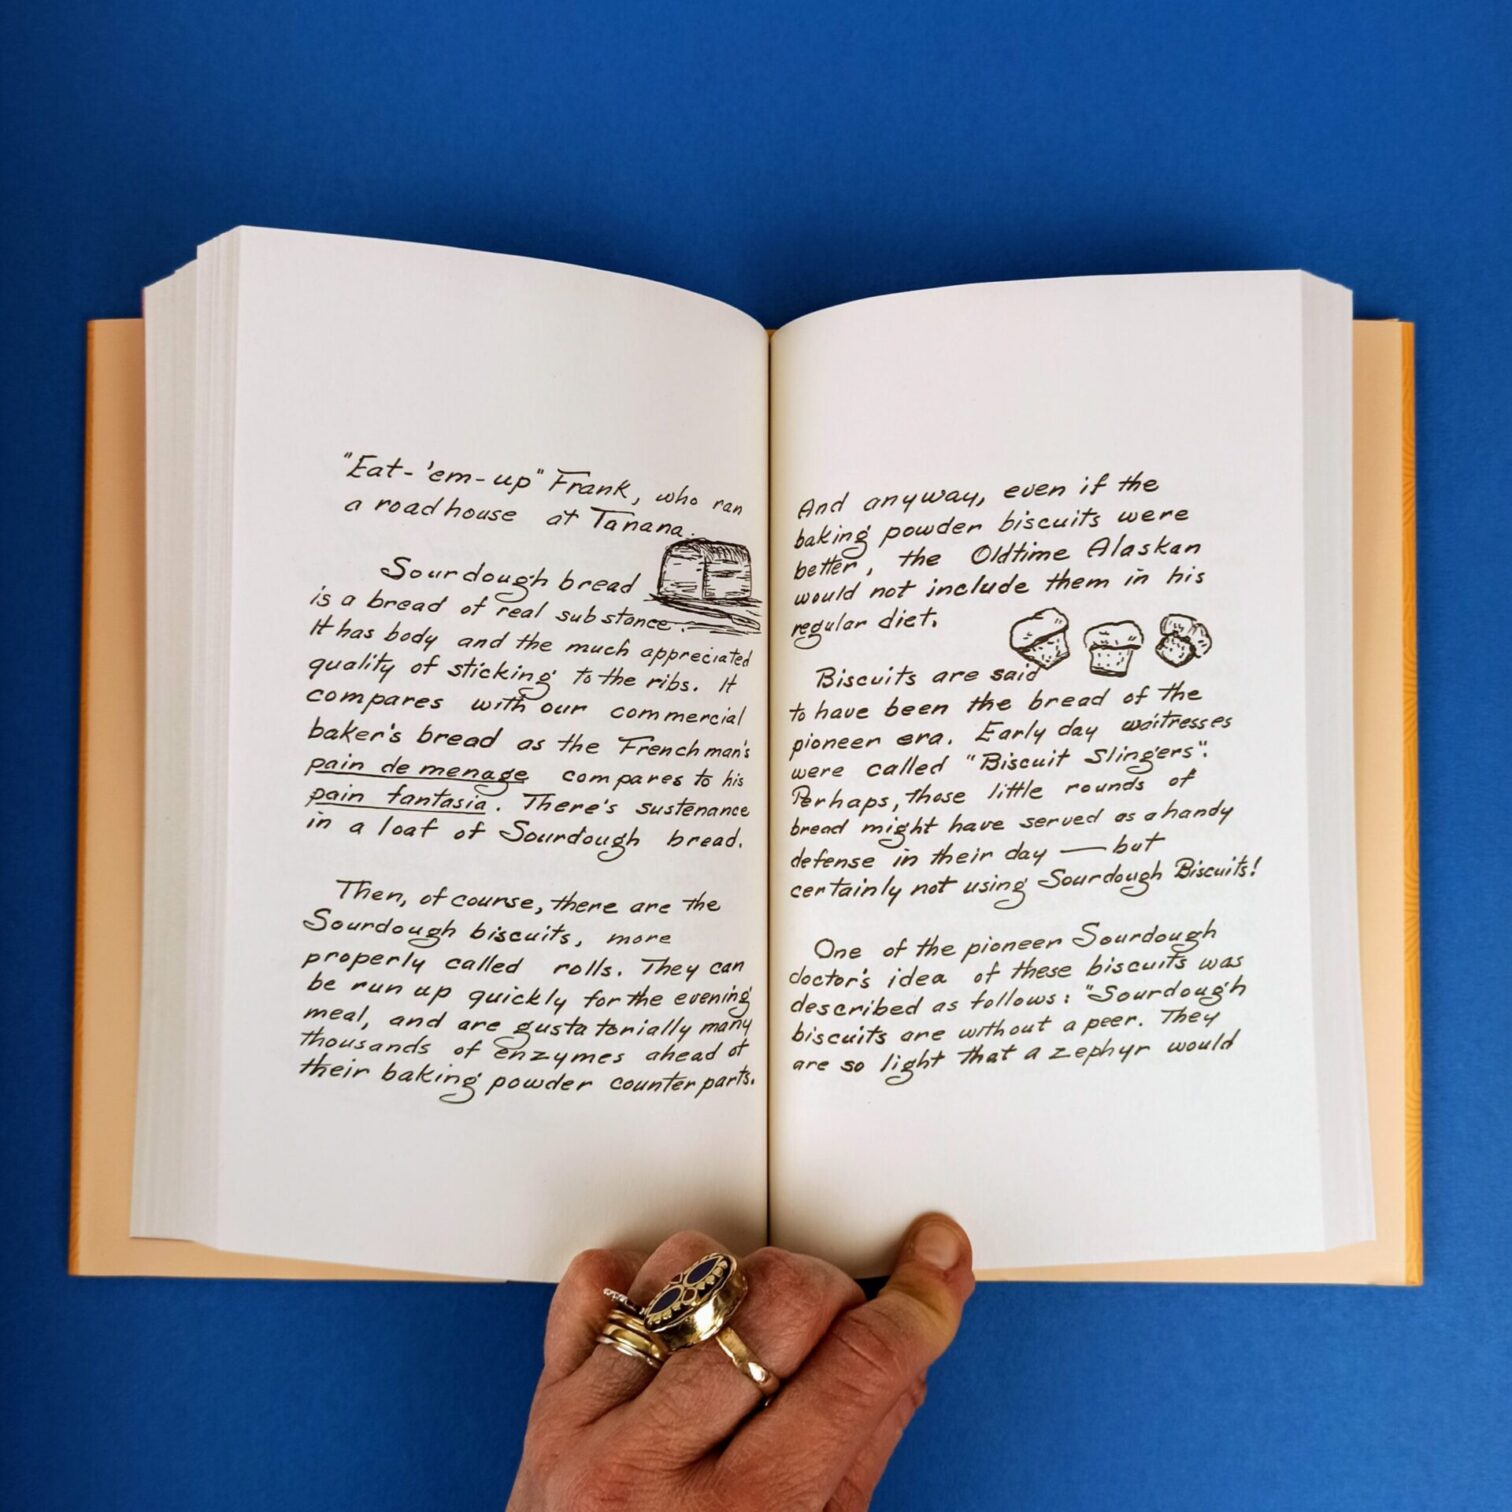 "Eat-'em-up" Frank, who ran
a roadhouse at Tanana.
Sourdough bread
is a bread of real substance.
It has body and the much appreciated
quality of sticking to the ribs. It
compares with our commercial
baker's bread as the Frenchman's
pain de menage compares to his
pain fantasia. There's sustenance
in a loaf of Sourdough bread.
Then, of course, there are the
Sourdough biscuits, more
properly called rolls. They can
be run up quickly for the evening
meal, and are gustatorially many
thousands of enzymes ahead of
their baking powder counterparts.
And anyway, even if the
baking powder biscuits were
better, the Oldtime Alaskan
would not include them in his
regular diet.
Biscuits are said
to have been the bread of the
pioneer era. Early day waitresses
were called "Biscuit Slingers".
Perhaps, those little rounds of
bread might have served as a handy
defense in their day — but
certainly not using Sourdough Biscuits!
One of the pioneer Sourdough
doctor's idea of these biscuits was
described as follows: "Sourdough
biscuits are without a peer. They
are so light that a zephyr would